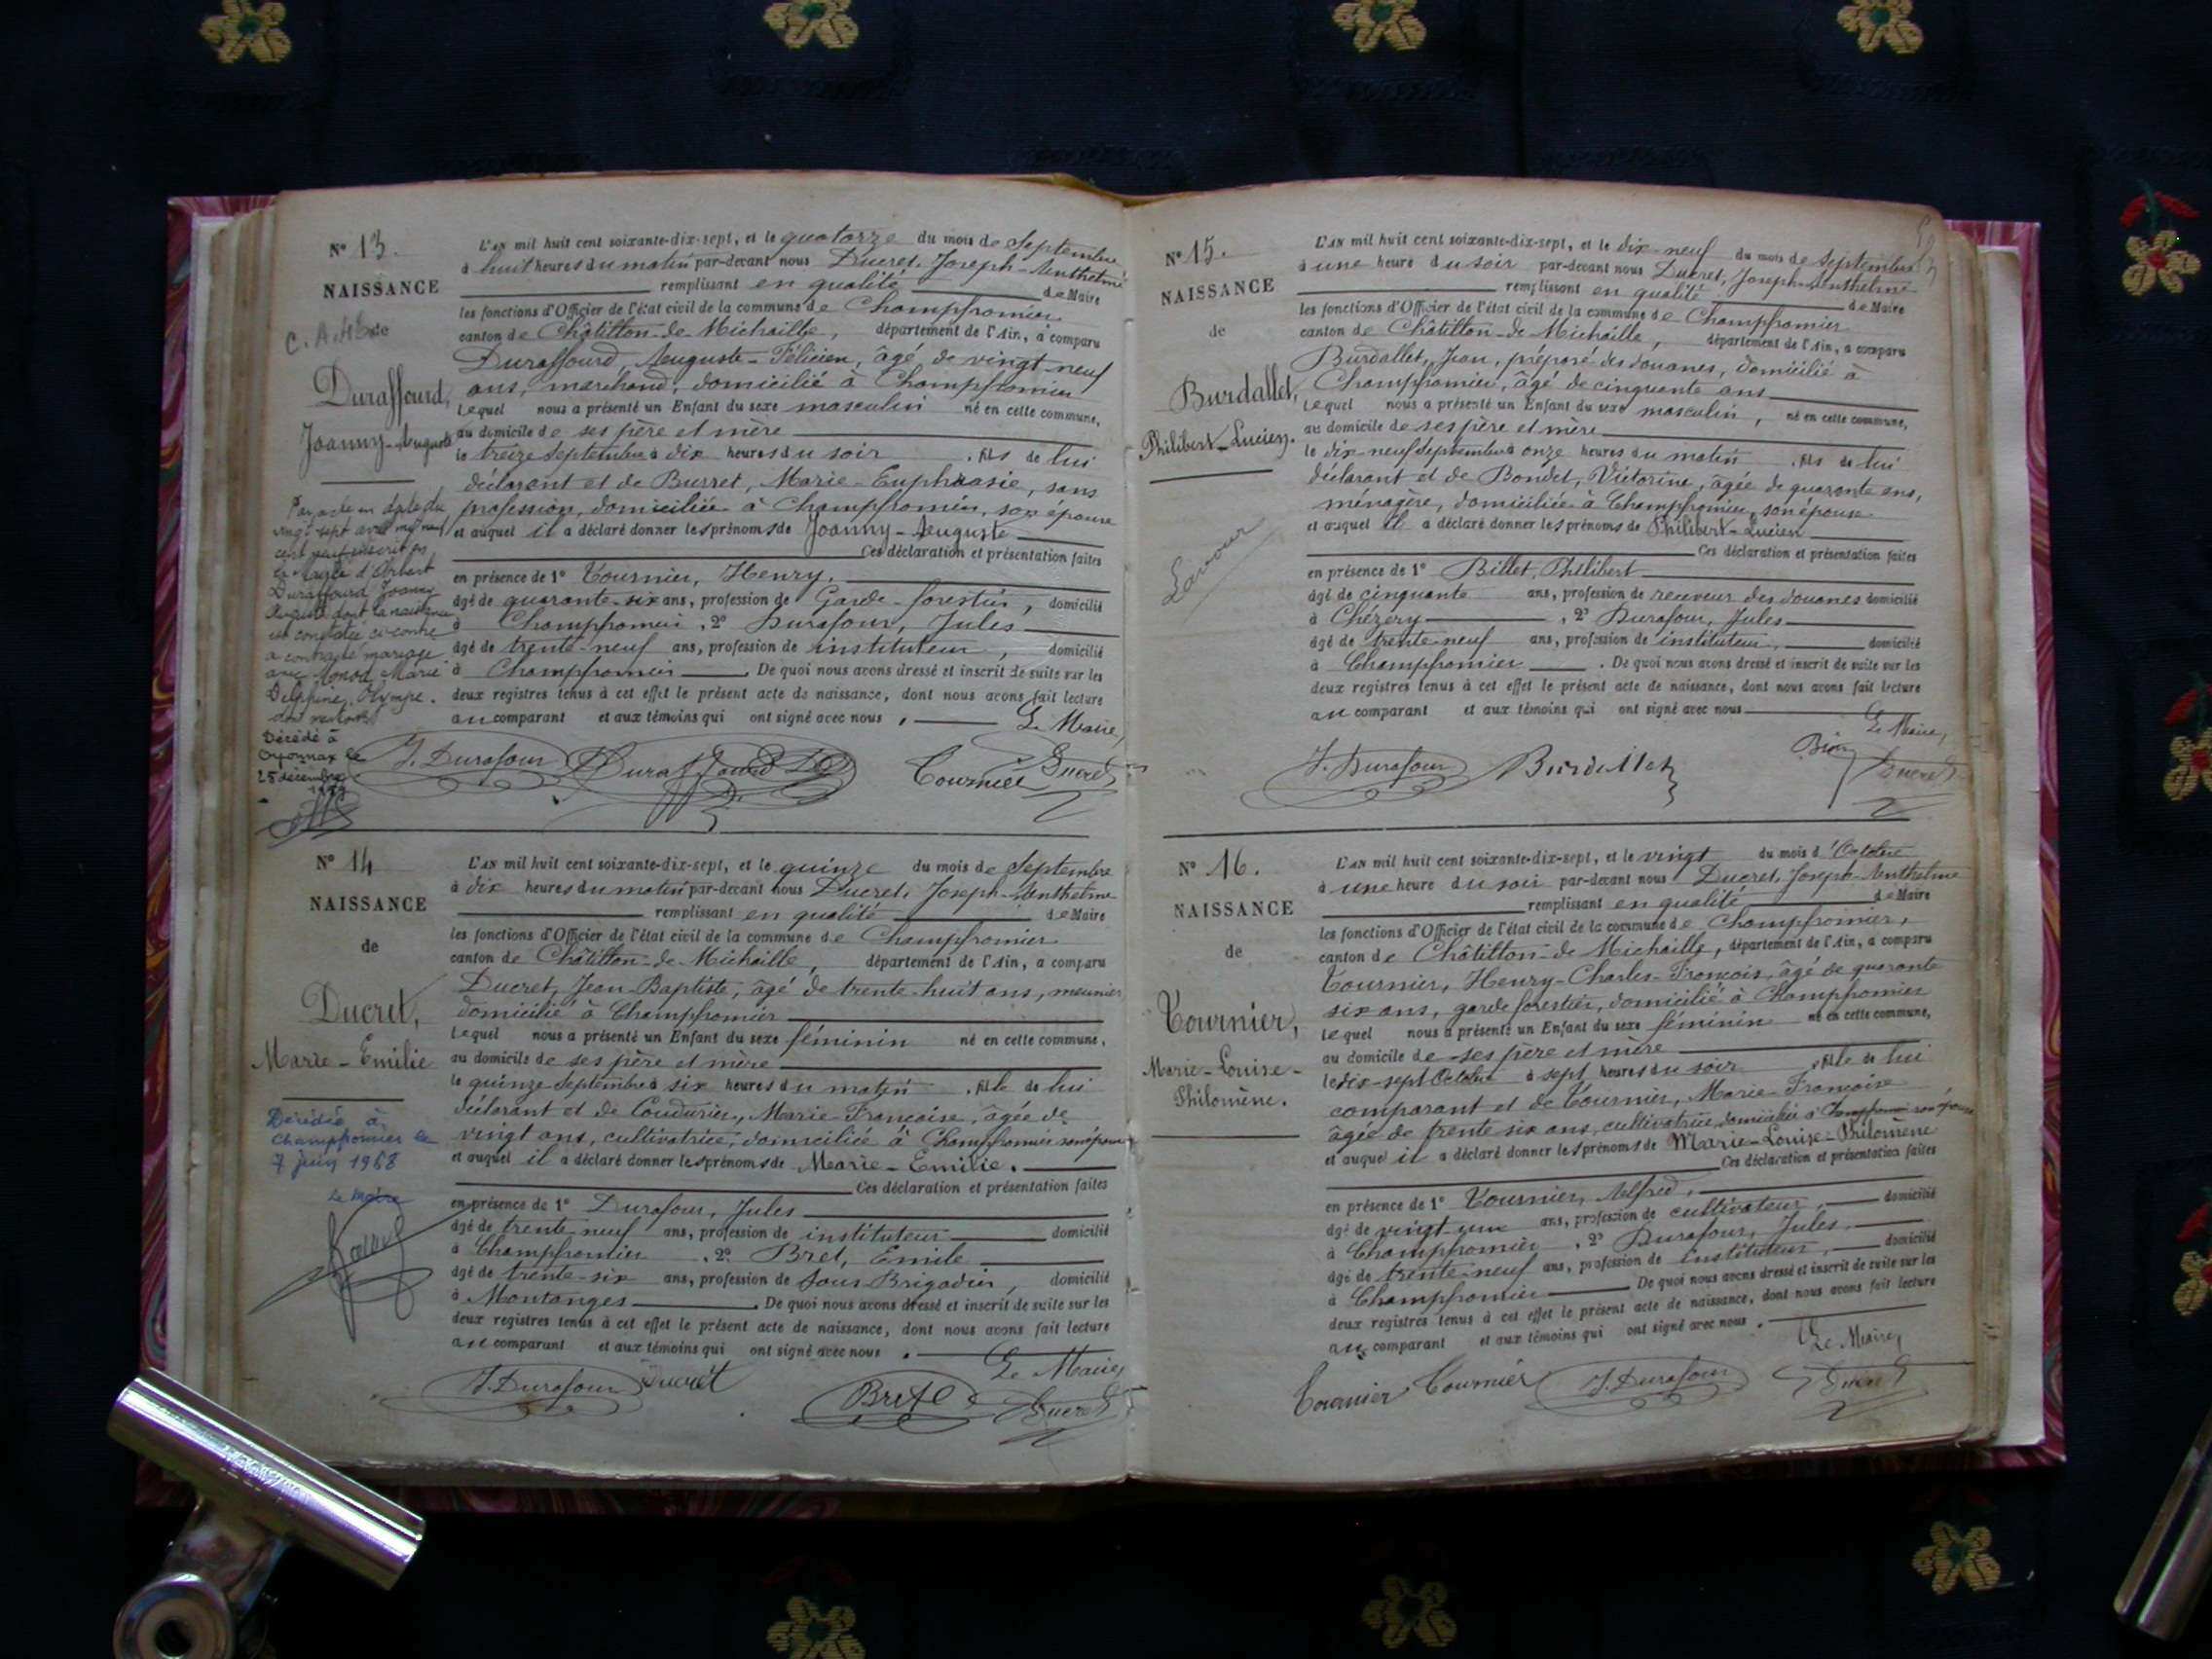 N° 13.
NAISSANCE
de
C. A.
Duraffourd,
Joanny-Auguste
L'AN mil huit cent soixante-dix-sept, et le quatorze du mois de Septembre
à huit heures du matin par-devant nous Ducret, Joseph-Anthelme
remplissant en qualité de Maire
les fonctions d'Officier de l'état civil de la commune de Champfromier
canton de Châtillon-de-Michaille, département de l'Ain, a comparu
Duraffourd Auguste-Félicien, âgé de vingt-neuf
ans, marchand, domicilié à Champfromier
Lequel nous a présenté un Enfant du sexe masculin né en cette commune,
au domicile de ses père et mère
le treize Septembre à dix heures du soir, fils de lui
déclarant et de Burret, Marie-Euphrasie, sans
profession, domiciliée à Champfromier, son épouse
et auquel il a déclaré donner les prénoms de Joanny-Auguste
Ces déclaration et présentation faites
en présence de 1° Tournier, Henry,
âgé de quarante-six ans, profession de Garde-forestier, domicilié
à Champfromier, 2° Durafour, Jules
âgé de trente-neuf ans, profession de instituteur, domicilié
à Champfromier. De quoi nous avons dressé et inscrit de suite sur les
deux registres tenus à cet effet le présent acte de naissance, dont nous avons fait lecture
au comparant et aux témoins qui ont signé avec nous.
Le Maire,
J. Durafour Duraffourd Tournier Ducret
Par acte en date du
vingt sept avril mil neuf
cent neuf inscrit en
la Mairie d'Arbent
Duraffourd Joanny
Auguste dont la naissance
est constatée ci-contre
a contracté mariage
avec Monod Marie
Delphine Olympe.
Décédé à
Oyonnax le
25 décembre
N° 14
NAISSANCE
de
Ducret,
Marie-Emilie
Décédée à
Champfromier le
7 juin 1968
Le Maire
L'AN mil huit cent soixante-dix-sept, et le quinze du mois de Septembre
à dix heures du matin par-devant nous Ducret, Joseph-Anthelme
remplissant en qualité de Maire
les fonctions d'Officier de l'état civil de la commune de Champfromier
canton de Châtillon-de-Michaille, département de l'Ain, a comparu
Ducret, Jean-Baptiste, âgé de trente-huit ans, meunier
domicilié à Champfromier
Lequel nous a présenté un Enfant du sexe féminin né en cette commune,
au domicile de ses père et mère
le quinze Septembre à six heures du matin, fille de lui
déclarant et de Coudurier, Marie-Françoise, âgée de
vingt ans, cultivatrice, domiciliée à Champfromier son épouse
et auquel il a déclaré donner les prénoms de Marie-Emilie.
Ces déclaration et présentation faites
en présence de 1° Durafour, Jules
âgé de trente-neuf ans, profession de instituteur domicilié
à Champfromier, 2° Bret, Emile
âgé de trente-six ans, profession de Sous-Brigadier, domicilié
à Montanges. De quoi nous avons dressé et inscrit de suite sur les
deux registres tenus à cet effet le présent acte de naissance, dont nous avons fait lecture
au comparant et aux témoins qui ont signé avec nous.
Le Maire,
J. Durafour Ducret Bret Ducret
N° 15.
NAISSANCE
de
Burdallet,
Philibert-Lucien.
Lavour
L'AN mil huit cent soixante-dix-sept, et le dix-neuf du mois de Septembre
à une heure du soir par-devant nous Ducret, Joseph-Anthelme
remplissant en qualité de Maire
les fonctions d'Officier de l'état civil de la commune de Champfromier
canton de Châtillon-de-Michaille, département de l'Ain, a comparu
Burdallet, Jean, préposé des douanes, domicilié à
Champfromier, âgé de cinquante ans
Lequel nous a présenté un Enfant du sexe masculin, né en cette commune,
au domicile de ses père et mère
le dix-neuf Septembre à onze heures du matin, fils de lui
déclarant et de Bondet, Victorine, âgée de quarante ans,
ménagère, domiciliée à Champfromier, son épouse
et auquel il a déclaré donner les prénoms de Philibert-Lucien
Ces déclaration et présentation faites
en présence de 1° Billet, Philibert
âgé de cinquante ans, profession de receveur des douanes domicilié
à Chézery, 2° Durafour, Jules
âgé de trente-neuf ans, profession de instituteur, domicilié
à Champfromier. De quoi nous avons dressé et inscrit de suite sur les
deux registres tenus à cet effet le présent acte de naissance, dont nous avons fait lecture
au comparant et aux témoins qui ont signé avec nous
Le Maire,
J. Durafour Burdallet Ducret
N° 16.
NAISSANCE
de
Tournier,
Marie-Louise-
Philomène.
L'AN mil huit cent soixante-dix-sept, et le vingt du mois d'Octobre
à une heure du soir par-devant nous Ducret, Joseph-Anthelme
remplissant en qualité de Maire
les fonctions d'Officier de l'état civil de la commune de Champfromier,
canton de Châtillon-de-Michaille, département de l'Ain, a comparu
Tournier, Henry-Charles-François, âgé de quarante
six ans, garde forestier, domicilié à Champfromier
Lequel nous a présenté un Enfant du sexe féminin né en cette commune,
au domicile de ses père et mère
le dix-sept Octobre à sept heures du soir, fille de lui
comparant et de Tournier, Marie-Françoise
âgée de trente six ans, cultivatrice, domiciliée à Champfromier son épouse
et auquel il a déclaré donner les prénoms de Marie-Louise-Philomène
Ces déclaration et présentation faites
en présence de 1° Tournier, Alfred,
âgé de vingt-un ans, profession de cultivateur, domicilié
à Champfromier, 2° Durafour, Jules,
âgé de trente-neuf ans, profession de instituteur, domicilié
à Champfromier. De quoi nous avons dressé et inscrit de suite sur les
deux registres tenus à cet effet le présent acte de naissance, dont nous avons fait lecture
au comparant et aux témoins qui ont signé avec nous.
Le Maire,
Tournier Tournier J. Durafour Ducret